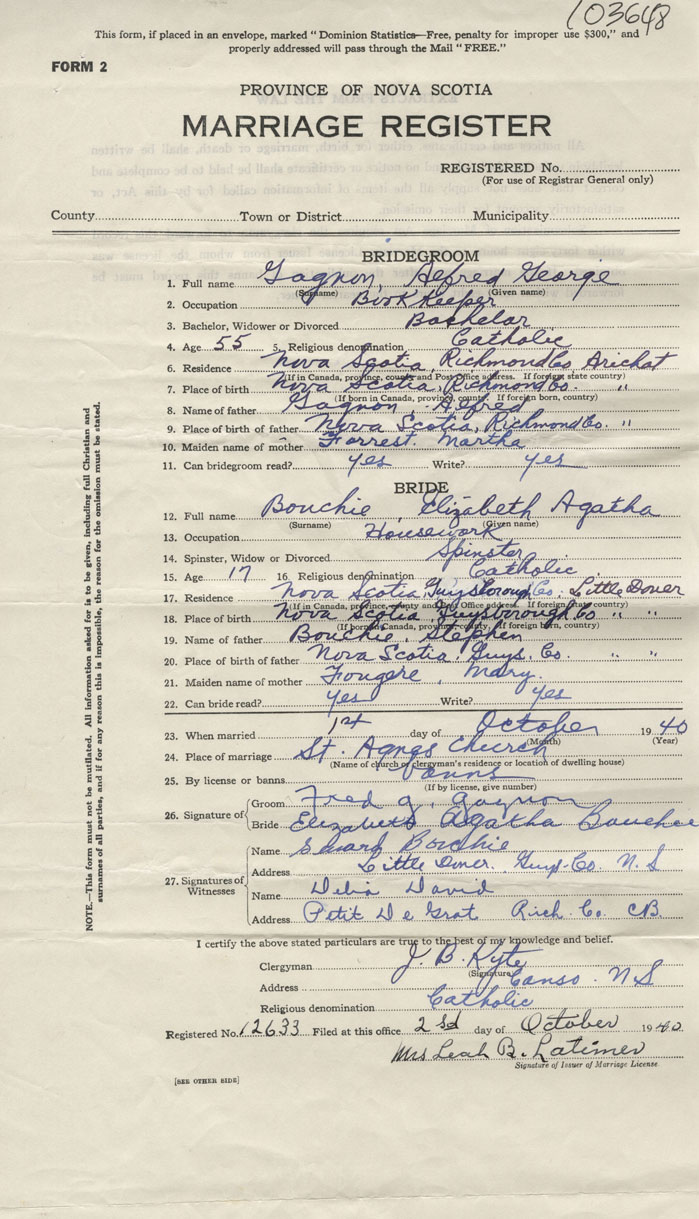 103648
This form, if placed in an envelope, marked "Dominion Statistics—Free, penalty for improper use $300," and
properly addressed will pass through the Mail "FREE."
FORM 2
PROVINCE OF NOVA SCOTIA
MARRIAGE REGISTER
REGISTERED No.
(For use of Registrar General only)
County Town or District Municipality
BRIDEGROOM
1. Full name Gagnon, Alfred George
(Surname) (Given name)
2. Occupation Book Keeper
3. Bachelor, Widower or Divorced Bachelor
4. Age 55 5. Religious denomination Catholic
6. Residence Nova Scotia, Richmond Co Arichat
(If in Canada, province, county and Post Office address. If foreign state country)
7. Place of birth Nova Scotia, Richmond Co. "
(If born in Canada, province, county. If foreign born, country)
8. Name of father Gagnon, Alfred
9. Place of birth of father Nova Scotia, Richmond Co. "
10. Maiden name of mother Forrest. Martha
11. Can bridegroom read? yes Write? yes
BRIDE
12. Full name Bouchie, Elizabeth Agatha
(Surname) (Given name)
13. Occupation Housework
14. Spinster, Widow or Divorced Spinster
15. Age 17 16. Religious denomination Catholic
17. Residence Nova Scotia, Guysborough Co. Little Dover
(If in Canada, province, county and Post Office address. If foreign state country)
18. Place of birth Nova Scotia, Guysborough Co " "
(If born in Canada, province, county. If foreign born, country)
19. Name of father Bouchie, Stephen
20. Place of birth of father Nova Scotia, Guys. Co. " "
21. Maiden name of mother Fougere, Mary.
22. Can bride read? yes Write? yes
23. When married 1st day of October 1940
(Month) (Year)
24. Place of marriage St. Agnes Church
(Name of church or clergyman's residence or location of dwelling house)
25. By license or banns banns
(If by license, give number)
26. Signature of
Groom Fred G. Gagnon
Bride Elizabeth Agatha Bouchie
27. Signatures of Witnesses
Name Edward Bouchie
Address Little Dover. Guys. Co. N.S
Name Delia David
Address Petit De Grat Rich. Co. CB.
I certify the above stated particulars are true to the best of my knowledge and belief.
Clergyman J. B. Kyte
(Signature)
Address Canso. N.S
Religious denomination Catholic
Registered No. 12633 Filed at this office 2nd day of October 1940.
Mrs Leah B. Latimer
Signature of Issuer of Marriage License.
[SEE OTHER SIDE]
NOTE.—This form must not be mutilated. All information asked for is to be given, including full Christian and
surnames of all parties, and if for any reason this is impossible, the reason for the omission must be stated.